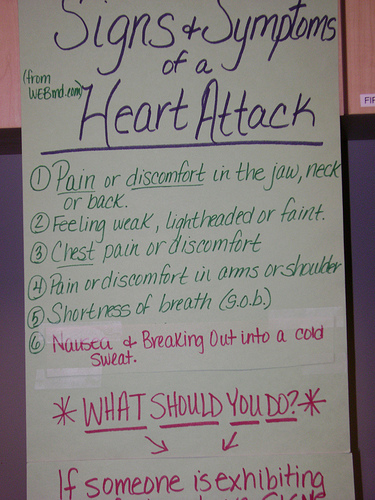 Signs & Symptoms
of a
(from
WEBmd.com)
Heart Attack
FIR
① Pain or discomfort in the jaw, neck
or back.
② Feeling weak, lightheaded or faint.
③ Chest pain or discomfort
④ Pain or discomfort in arms or shoulder
⑤ Shortness of breath (s.o.b.)
⑥ Nausea & Breaking Out into a cold
sweat.
* WHAT SHOULD YOU DO? *
If someone is exhibiting